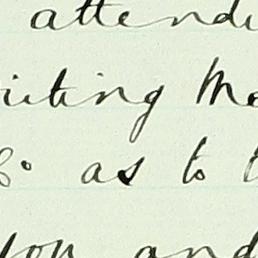 attendi
iting Me
so as to t
you and